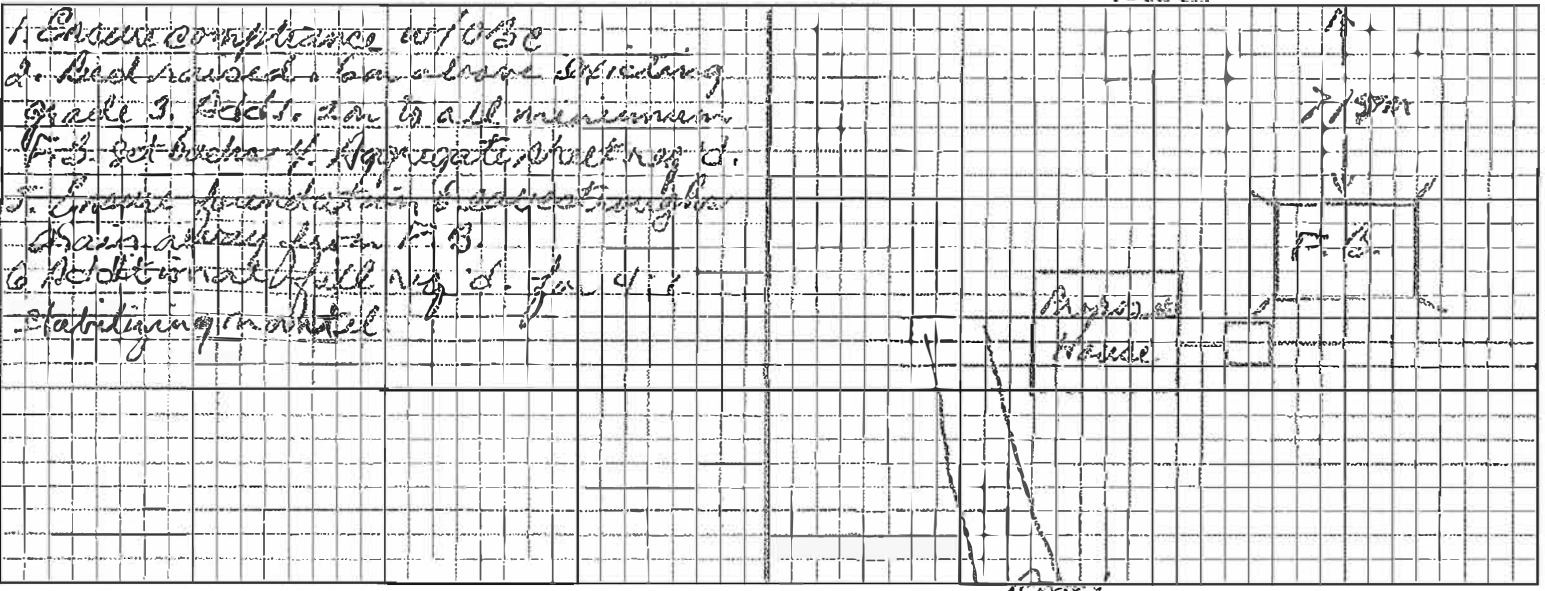 1. Ensure compliance w/ OBC
2. Bed raised .6m above existing
grade 3. Add 1.2m to all minimum
F.B. setbacks 4. Aggregate sheet req'd.
5. Ensure foundation & eavestroughs
drain away from F.B.
6 Additional fill req'd. for 4:1
stabilizing mantel
>15m
F.B.
Proposed
House